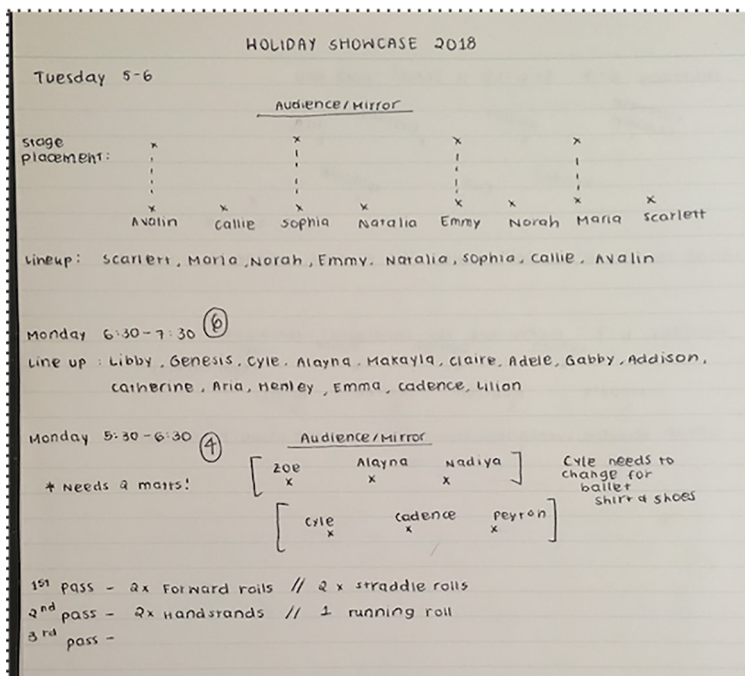 HOLIDAY SHOWCASE 2018
Tuesday 5-6
Audience/Mirror
Stage
placement:
Avalin Callie Sophia Natalia Emmy Norah Maria Scarlett
Lineup: Scarlett, Maria, Norah, Emmy, Natalia, Sophia, Callie, Avalin
Monday 6:30-7:30 6
Line up: Libby, Genesis, Cyle, Alayna, Makayla, Claire, Adele, Gabby, Addison,
Catherine, Aria, Henley, Emma, Cadence, Lilion
Monday 5:30-6:30 4
Audience/Mirror
* Needs 2 matts!
[ Zoe Alayna Nadiya ]
x x x
[ Cyle Cadence Peyton ]
x x x
Cyle needs to
change for
ballet
shirt & shoes
1st pass - 2x Forward rolls // 2x straddle rolls
2nd pass - 2x Handstands // 1 running roll
3rd pass -